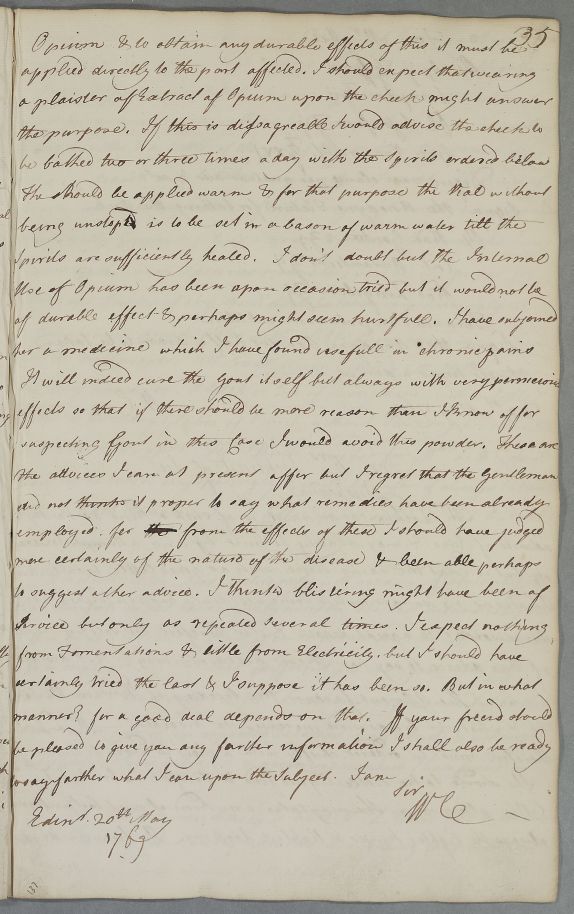 35
Opium & to obtain any durable effects of this it must be
applied directly to the part affected. I should expect that wearing
a plaister of Extract of Opium upon the cheek might answer
the purpose. If this is disagreable I would advise the cheek to
be bathed two or three times a day with the Spirits ordered below
the should be applied warm & for that purpose the Vial without
being unstopd is to be set in a bason of warm water till the
Spirits are sufficiently heated. I don't doubt but the Internal
Use of Opium has been upon occasion tried but it would not be
of durable effect & perhaps might seem hurtfull. I have subjoined
her a medicine which I have found usefull in chronic pains
It will indeed cure the Gout itself but always with very pernicious
effects so that if there should be more reason than I know of for
suspecting Gout in this Case I would avoid this powder. These are
the advices I can at present offer but I regret that the Gentleman
did not think it proper to say what remedies have been already
employed. for from the effects of these I should have judged
more certainly of the nature of the disease & been able perhaps
to suggest other advice. I think blistering might have been of
Service but only as repeated several times. I expect nothing
from Fomentations & little from Electricity. but I should have
certainly tried the last & I suppose it has been so. But in what
manner? for a good deal depends on that. If your freind should
be pleased to give you any farther information I shall also be ready
to say farther what I can upon the Subject. I am
Sir
WC
Edinr. 20th May
1769
137